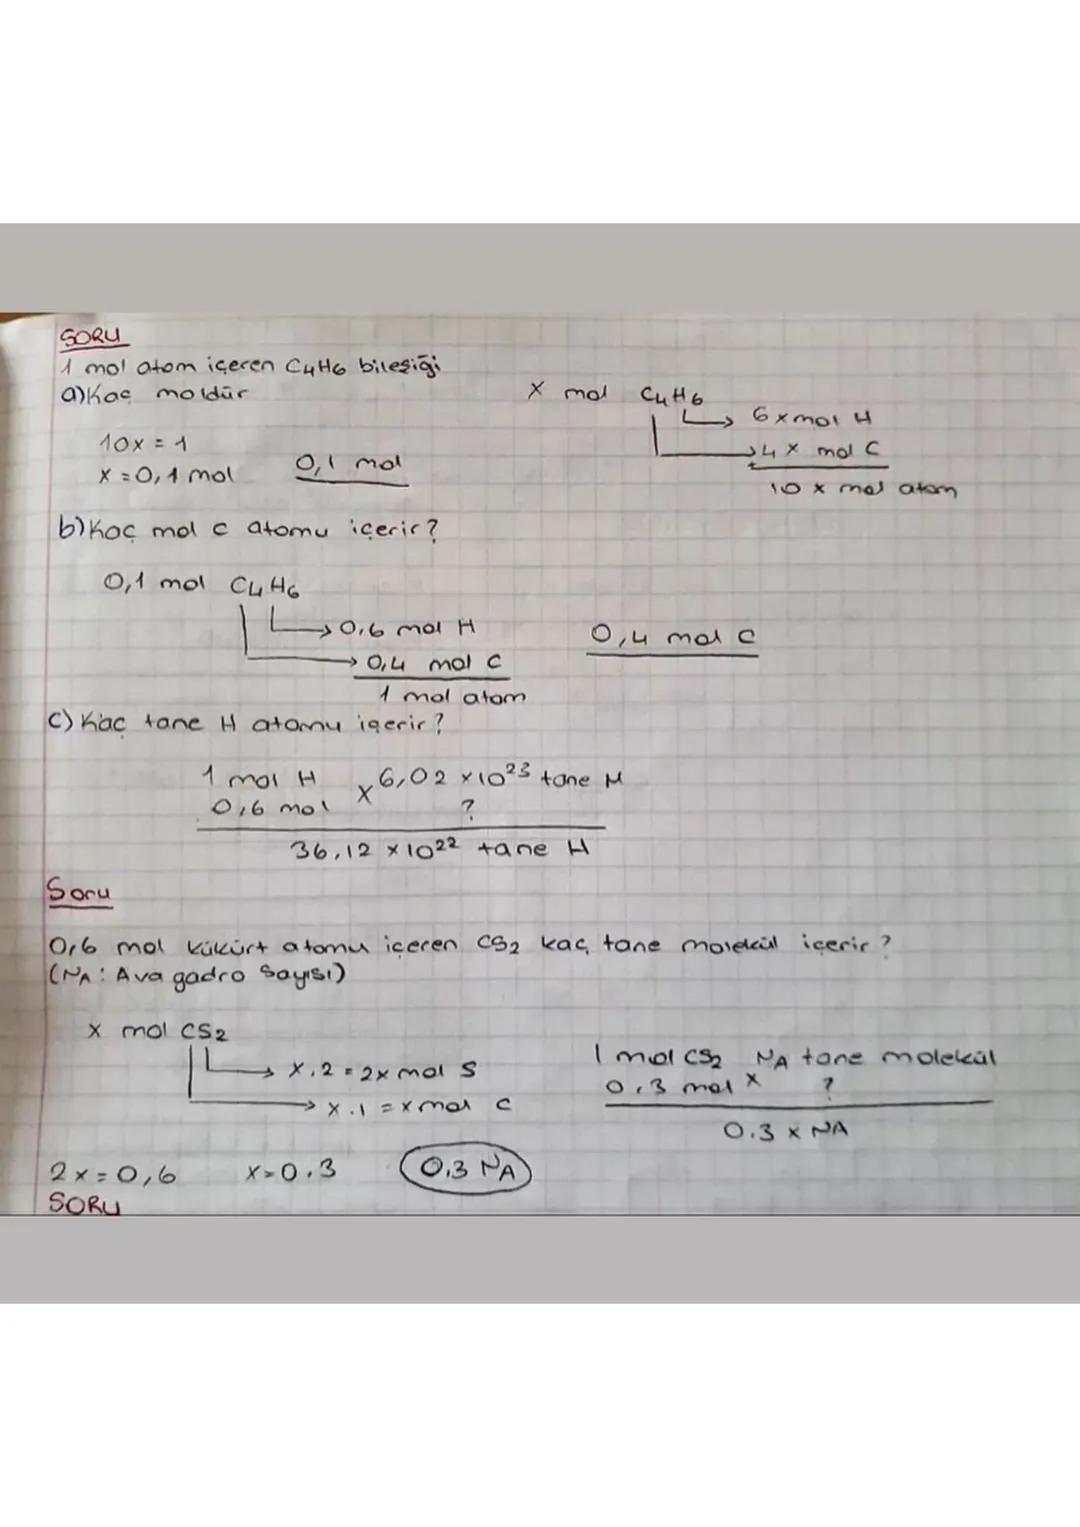 SORU
1 mol atom içeren C4H6 bileşiği
a)Kaç moldür
x mol C4H6
6x mol H
4x mol C
10x mol atom
10x = 1
x = 0,1 mol
0,1 mol
b)Kaç mol C atomu içerir?
0,1 mol C4H6
0,6 mol H
0,4 mol C
1 mol atom
0,4 mol C
c) Kaç tane H atomu içerir?
1 mol H x 6,02 x 10²³ tane H
0,6 mol ?
36,12 x 10²² tane H
Soru
0,6 mol kükürt atomu içeren CS2 kaç tane molekül içerir?
(NA: Avagadro sayısı)
x mol CS2
x.2 = 2x mol S
x.1 = x mol C
1 mol CS2 NA tane molekül
0.3 mol x ?
0.3 x NA
2x = 0,6 x = 0.3 0.3 NA
SORU